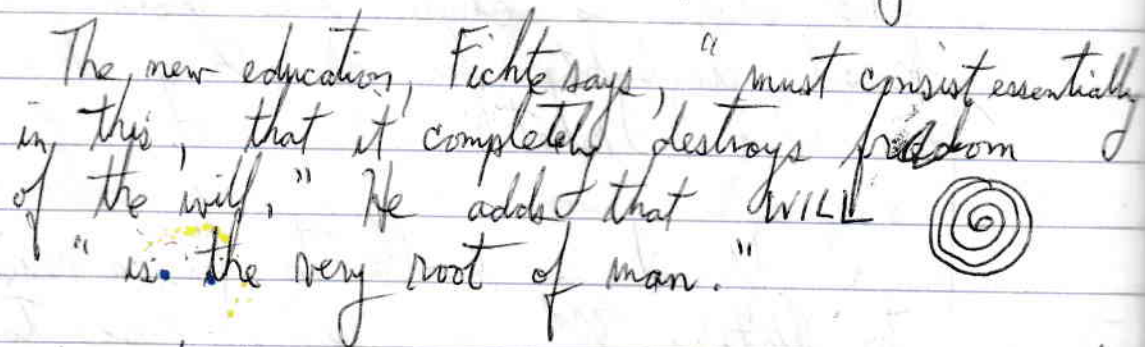 The new education, Fichte says, "must consist essentially
in this, that it completely destroys freedom
of the will." He adds that WILL
"is the very root of man."